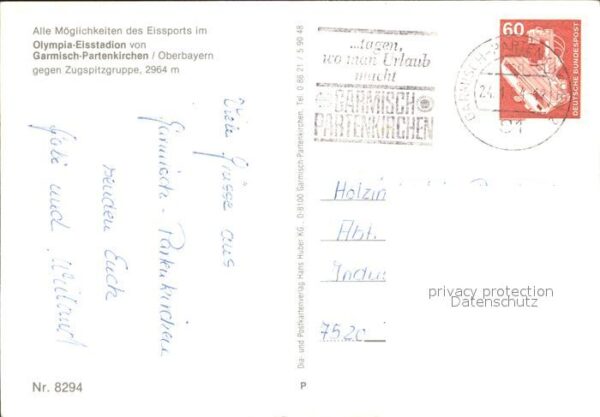 Alle Möglichkeiten des Eissports im
Olympia-Eisstadion von
Garmisch-Partenkirchen / Oberbayern
gegen Zugspitzgruppe, 2964 m
Viele Grüsse aus
Garmisch-Partenkirchen
senden Euch
Gabi und
Nr. 8294
Dia- und Postkartenverlag Hans Huber KG · D-8100 Garmisch-Partenkirchen, Tel. 0 88 21 / 5 90 48
P
...tagen,
wo man Urlaub
macht
GARMISCH
PARTENKIRCHEN
GARMISCH-PARTENKIRCHEN
24.
60
DEUTSCHE BUNDESPOST
Holzin
Abt.
Indus
7520
privacy protection
Datenschutz